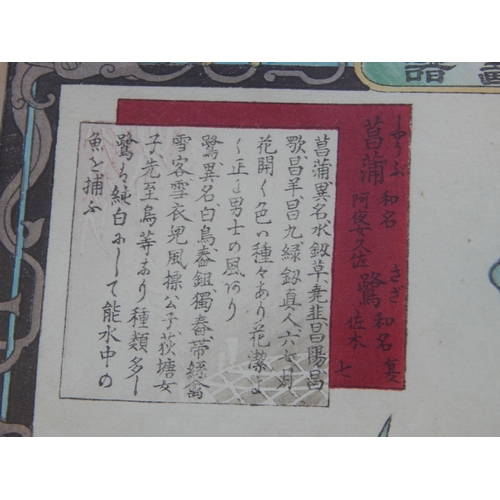 譜畫
しやうぶ
菖蒲 和名
阿夜女久佐
さぎ
鷺 和名
佐木
夏
七
菖蒲異名水劔草、堯韭、昌陽、昌
歜、昌羊、昌九、綠劔真人、六七月
花開く色い種々あり花潔よ
く正に男士の風アり
鷺異名白鳥、舂鉏、獨舂、帶絲禽
雪客、雪衣兒、風標公子、荻塘女
子、先至鳥等あり種類多し
鷺ハ純白にして能水中の
魚を捕ふ